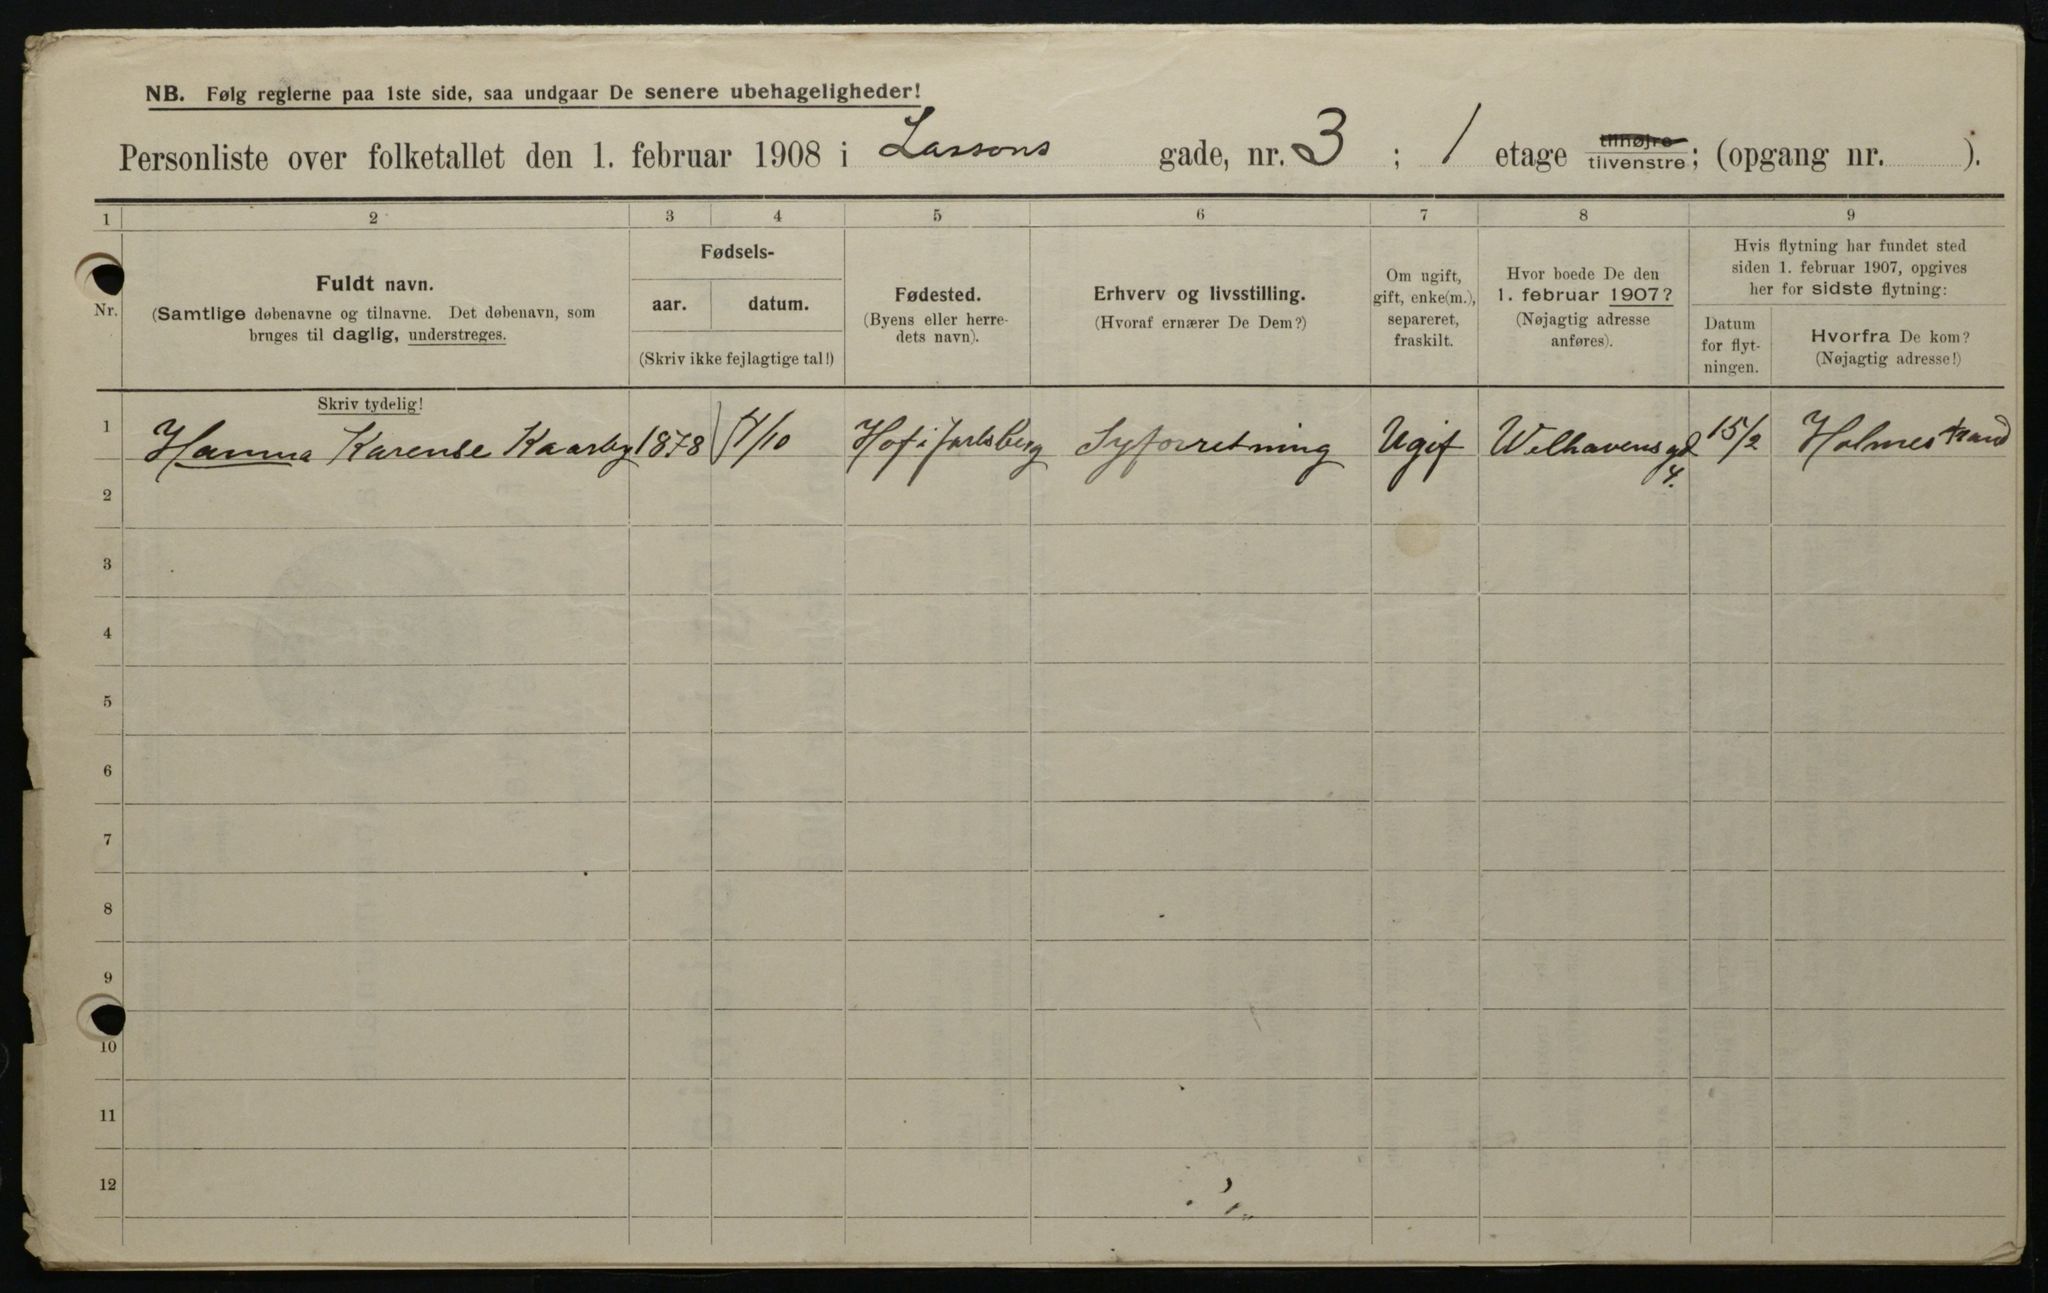 NB. Følg reglerne paa 1ste side, saa undgaar De senere ubehageligheder!
Personliste over folketallet den 1. februar 1908 i Lassons gade, nr. 3 ; 1 etage tilhøjre tilvenstre; (opgang nr. ).
1 2 3 4 5 6 7 8 9
Nr.
Fuldt navn.
(Samtlige døbenavne og tilnavne. Det døbenavn, som
bruges til daglig, understreges.
Skriv tydelig!
Fødsels-
aar. datum.
(Skriv ikke fejlagtige tal!)
Fødested.
(Byens eller herre-
dets navn).
Erhverv og livsstilling.
(Hvoraf ernærer De Dem?)
Om ugift,
gift, enke(m.),
separeret,
fraskilt.
Hvor boede De den
1. februar 1907?
(Nøjagtig adresse
anføres).
Hvis flytning har fundet sted
siden 1. februar 1907, opgives
her for sidste flytning:
Datum
for flyt-
ningen.
Hvorfra De kom?
(Nøjagtig adresse!)
1 Hanna Karense Kaarby 1878 /10 Hof i Jarlsberg Syforretning Ugif Welhavensgd 4. 15/2 Holmestrand
2
3
4
5
6
7
8
9
10
11
12